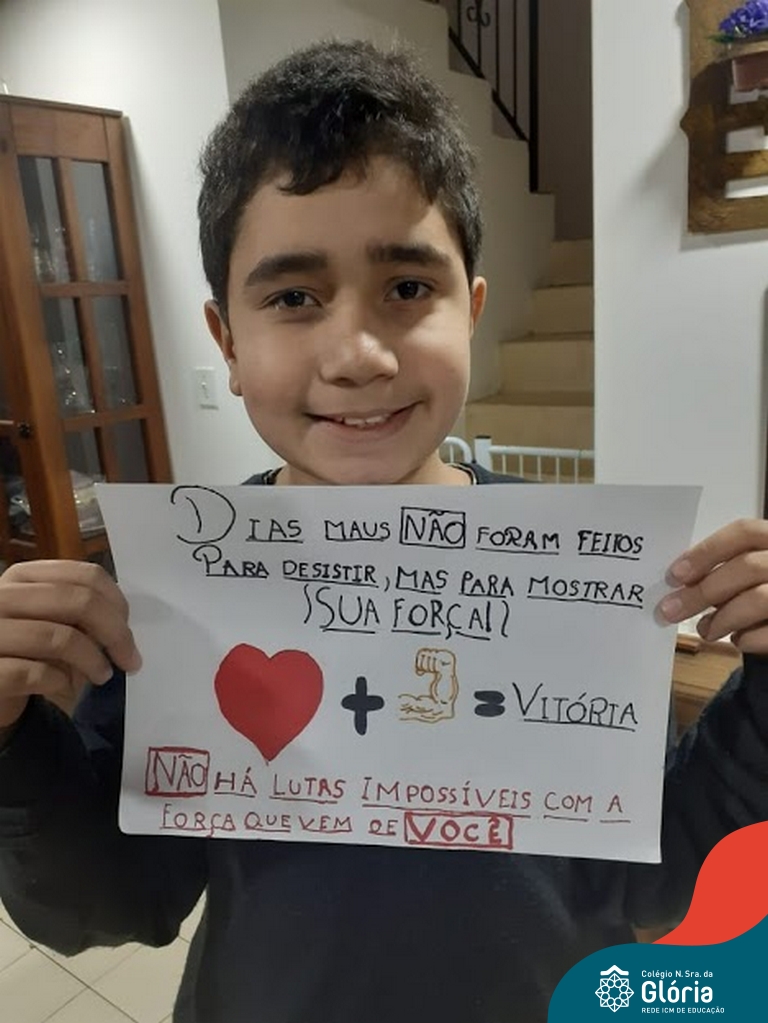 DIAS MAUS NÃO FORAM FEITOS
PARA DESISTIR, MAS PARA MOSTRAR
SUA FORÇA!
+ = VITÓRIA
NÃO HÁ LUTAS IMPOSSÍVEIS COM A
FORÇA QUE VEM DE VOCÊ
Colégio N. Sra. da
Glória
REDE ICM DE EDUCAÇÃO